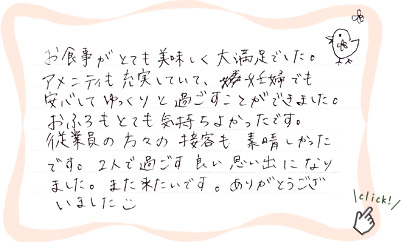 お食事がとても美味しく大満足でした。
アメニティも充実していて、妊婦でも
安心してゆっくりと過ごすことができました。
おふろもとても気持ちよかったです。
従業員の方々の接客も素晴しかった
です。2人で過ごす良い思い出になり
ました。また来たいです。ありがとうござ
いました
click!